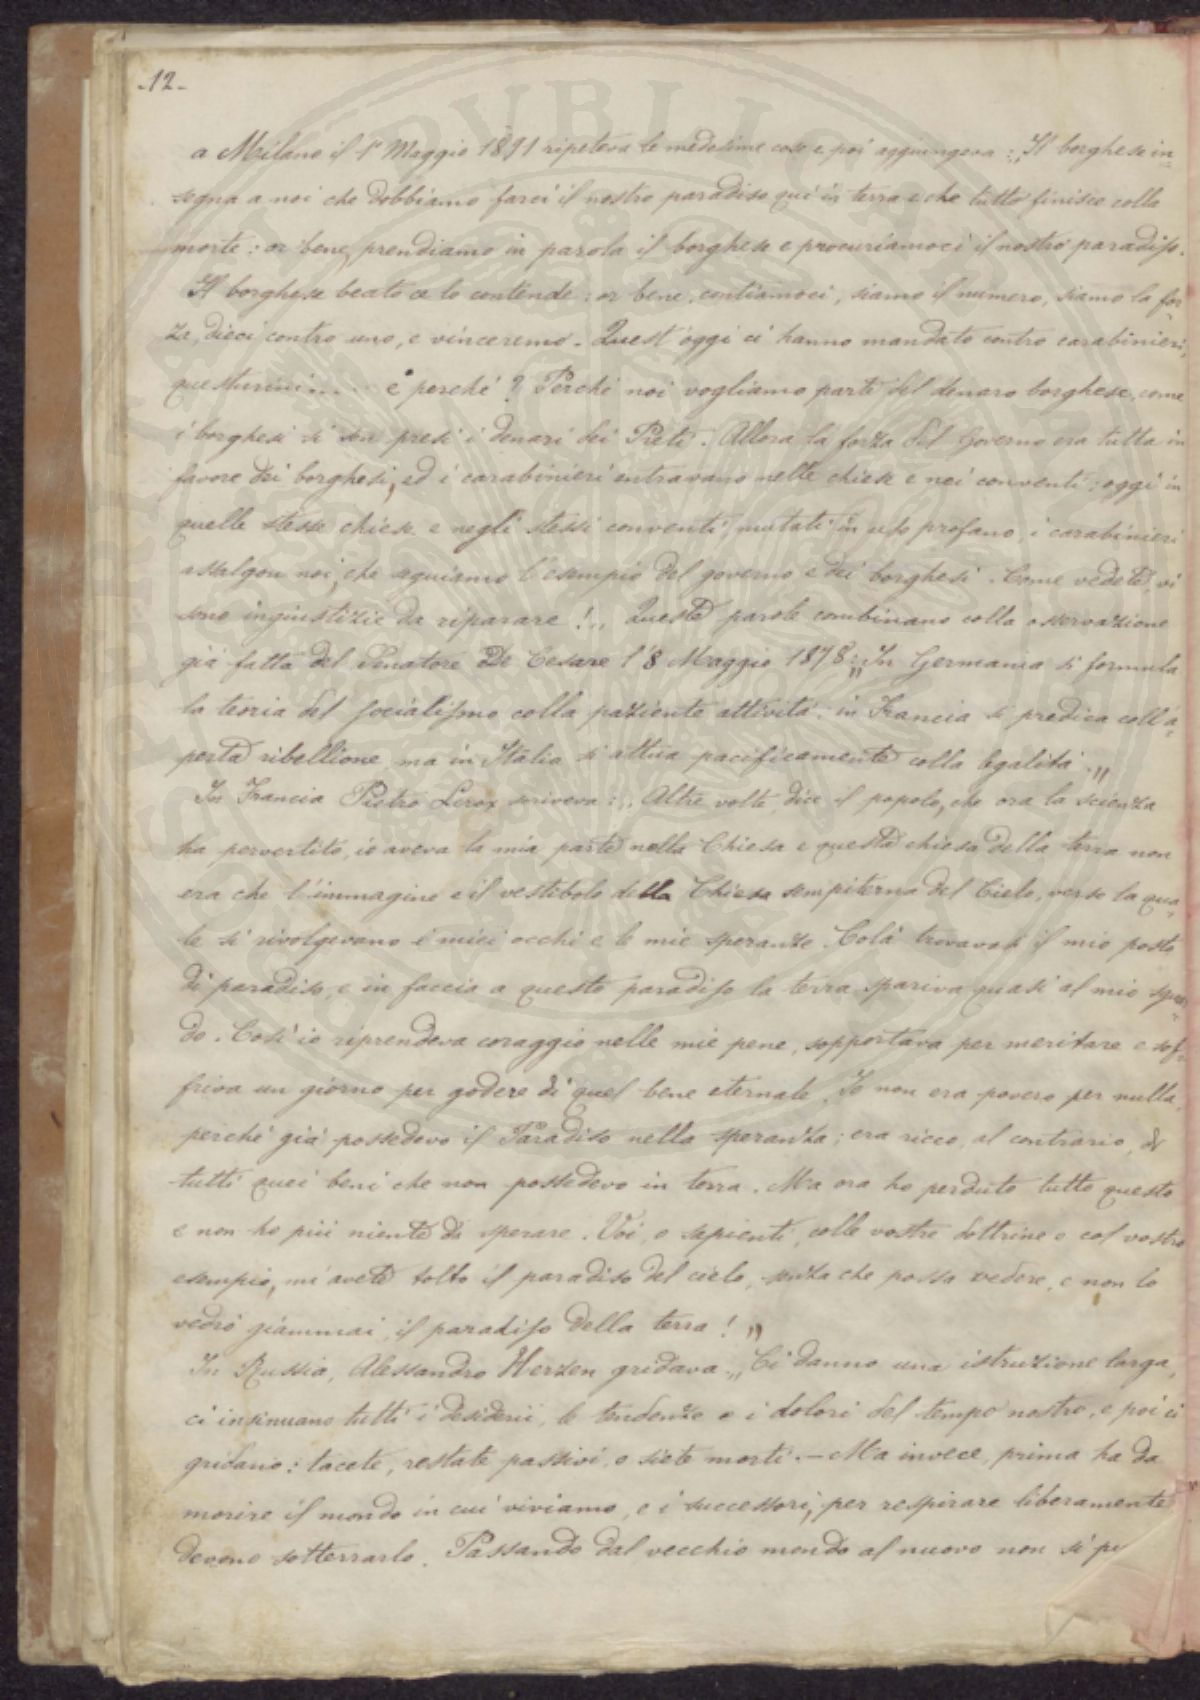 -12-
a Milano il 1° Maggio 1891 ripeteva le medesime cose e poi aggiungeva: „Il borghese in=
segna a noi che dobbiamo farci il nostro paradiso qui in terra e che tutto finisce colla
morte: or bene, prendiamo in parola il borghese e procuriamoci il nostro paradiso.
Il borghese beato ce lo contende: or bene, contiamoci, siamo il numero, siamo la for=
za, dieci contro uno, e vinceremo. Quest'oggi ci hanno mandato contro carabinieri,
questurini.... e perché? Perché noi vogliamo parte del denaro borghese, come
i borghesi si son presi i denari dei Preti. Allora la forza del Governo era tutta in
favore dei borghesi, ed i carabinieri entravano nelle chiese e nei conventi: oggi in
quelle stesse chiese e negli stessi conventi, mutati in uso profano, i carabinieri
assalgon noi, che seguiamo l'esempio del governo e dei borghesi. Come vedete, vi
sono ingiustizie da riparare!„ Queste parole combinano colla osservazione
già fatta del Senatore De Cesare l'8 Maggio 1878: „In Germania si formula
la teoria del socialismo colla paziente attività: in Francia si predica coll'a=
perta ribellione, ma in Italia si attua pacificamente colla legalità.„
In Francia Pietro Lerox scriveva: „Altre volte, dice il popolo, che ora la scienza
ha pervertito, io aveva la mia parte nella Chiesa e questa chiesa della terra non
era che l'immagine e il vestibolo della Chiesa sempiterna del Cielo, verso la qua=
le si rivolgevano i miei occhi e le mie speranze. Colà trovavasi il mio posto
di paradiso, e in faccia a questo paradiso la terra spariva quasi al mio sguar=
do. Così io riprendeva coraggio nelle mie pene, sopportava per meritare e sof=
friva un giorno per godere di quel bene eternale. Io non era povero per nulla,
perché già possedevo il Paradiso nella speranza; era ricco, al contrario, di
tutti quei beni che non possedevo in terra. Ma ora ho perduto tutto questo
e non ho più niente da sperare. Voi, o sapienti, colle vostre dottrine e col vostro
esempio, mi avete tolto il paradiso del cielo, senza che possa vedere, e non lo
vedrò giammai, il paradiso della terra!„
In Russia, Alessandro Herzen gridava: „Ci danno una istruzione larga,
ci insinuano tutti i desiderii, le tendenze e i dolori del tempo nostro, e poi ci
gridano: tacete, restate passivi, o siete morti. - Ma invece, prima ha da
morire il mondo in cui viviamo, e i successori, per respirare liberamente
devono sotterrarlo. Passando dal vecchio mondo al nuovo non si